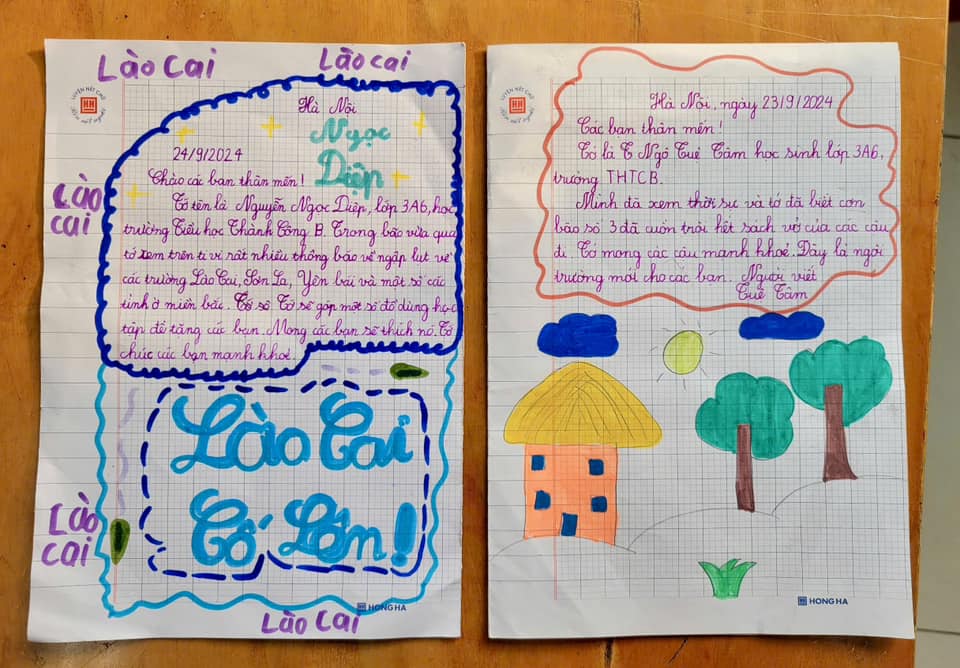 Lào Cai
Lào cai
LUYỆN NÉT CHỮ
Rèn nết người
Hà Nội
Ngọc
Diệp
24/9/2024
Chào các bạn thân mến!
Tớ tên là Nguyễn Ngọc Diệp, lớp 3A6, học
trường Tiểu học Thành Công B. Trong bão vừa qua
tớ xem trên ti vi rất nhiều thông báo về ngập lụt về
các trường Lào Cai, Sơn La, Yên bái và một số các
tỉnh ở miền bắc. Tớ sẽ góp một số đồ dùng học
tập để tặng các bạn. Mong các bạn sẽ thích nó. Tớ
chúc các bạn mạnh khoẻ!
Lào
cai
Lào Cai
Cố Lớn!
Lào
cai
Lào Cai
HONG HA
LUYỆN NÉT CHỮ
Rèn nết người
Hà Nội, ngày 23/9/2024
Các bạn thân mến!
Tớ là Ngô Tuệ Tâm học sinh lớp 3A6,
trường THTCB.
Mình đã xem thời sự và tớ đã biết cơn
bão số 3 đã cuốn trôi hết sạch vở của các cậu
đi. Tớ mong các cậu mạnh khoẻ. Đây là ngôi
trường mới cho các bạn. Người viết
Tuệ Tâm
HONG HA